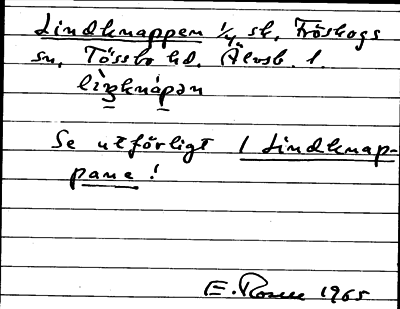 Lindknappen 1/4 sk, Fröskogs
sn, Tössbo hd, Älvsb. l.
lìŋknápan
Se utförligt 1 Lindknap-
pane!
E. Rosen 1965